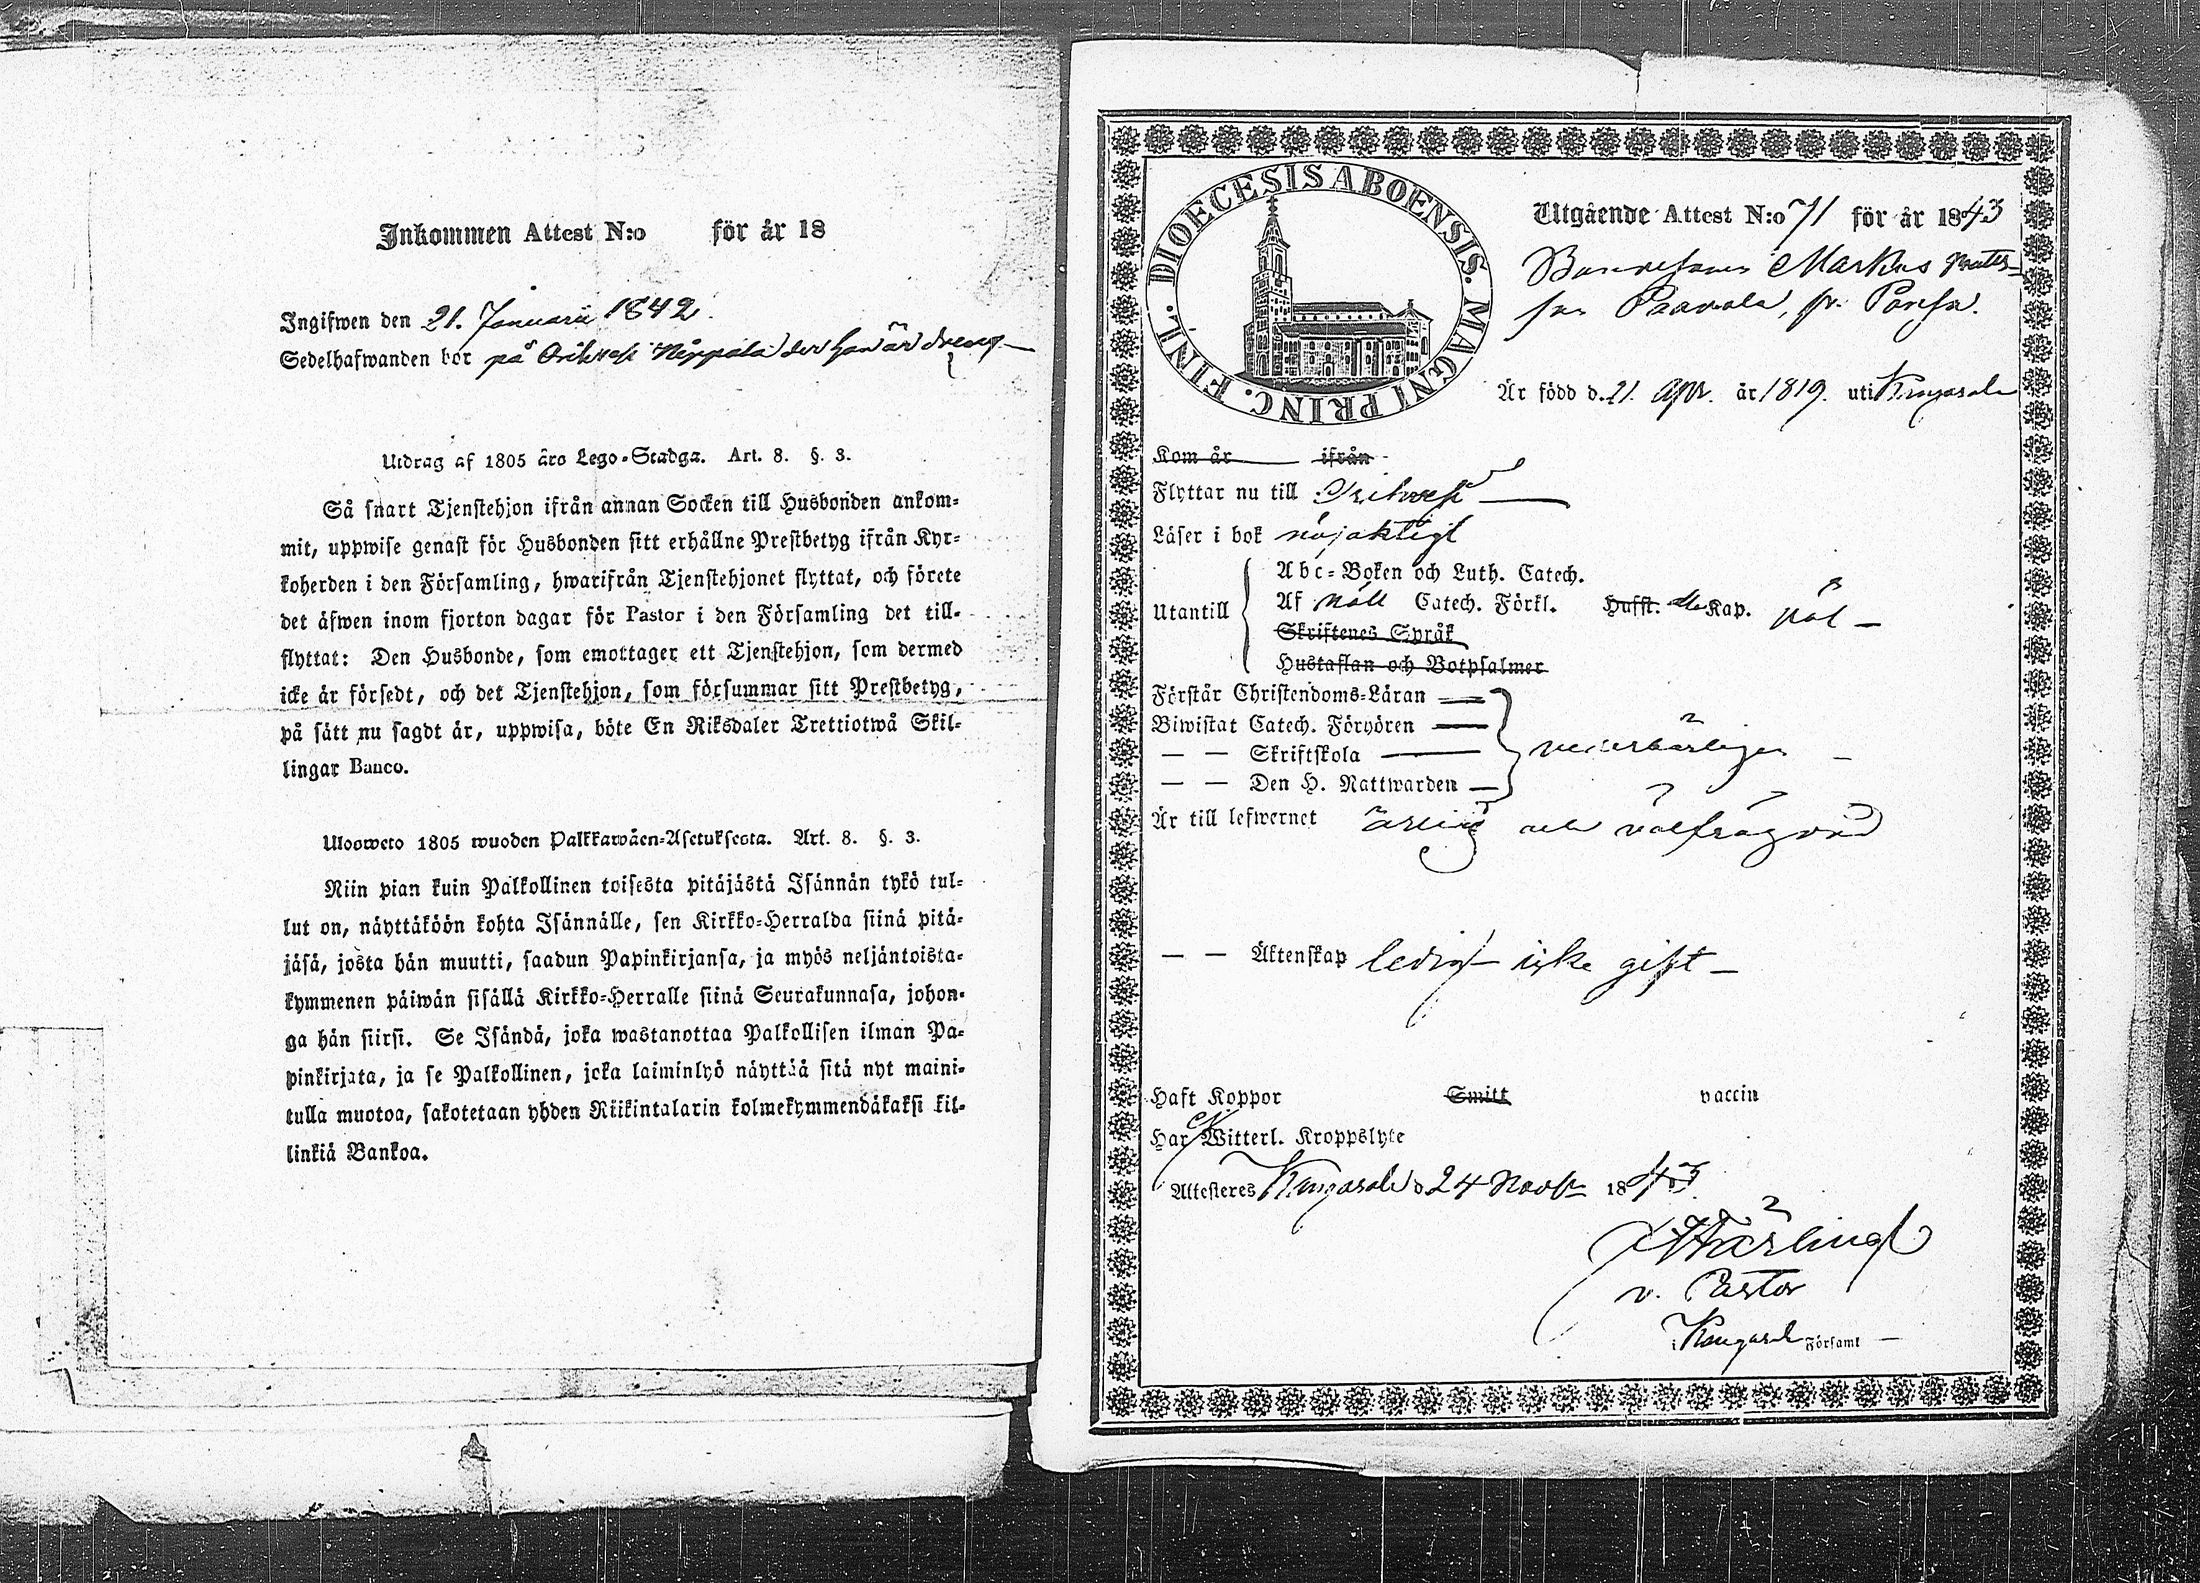 Inkommen Attest N:o för år 18
Ingifwen den 21. Januarii 1842.
Sedelhafwanden bor på Orihvesi Neppala der han är dreng
Utdrag af 1805 års Lego-Stadga. Art. 8. §. 3.
Så snart Tjenstehjon ifrån annan Socken till Husbonden ankom-
mit, uppwise genast för Husbonden sitt erhållne Prestbetyg ifrån Kyr-
koherden i den Församling, hwarifrån Tjenstehjonet flyttat, och förete
det äfwen inom fjorton dagar för Pastor i den Församling det till-
flyttat: Den Husbonde, som emottager ett Tjenstehjon, som dermed
icke är försedt, och det Tjenstehjon, som försummar sitt Prestbetyg,
på sätt nu sagdt är, uppwisa, böte En Riksdaler Trettiotwå Skil-
lingar Banco.
Ulosweto 1805 wuoden Palkkawäen-Asetuksesta. Art. 8. §. 3.
Niin pian kuin Palkollinen toisesta pitäjästä Isännän tykö tul-
lut on, näyttäköön kohta Isännälle, sen Kirkko-Herralda siinä pitä-
jäsä, josta hän muutti, saadun Papinkirjansa, ja myös neljäntoista-
kymmenen päiwän sisällä Kirkko-Herralle siinä Seurakunnasa, johon-
ga hän siirsi. Se Isändä, joka wastanottaa Palkollisen ilman Pa-
pinkirjata, ja se Palkollinen, joka laiminlyö näyttää sitä nyt maini-
tulla muotoa, sakotetaan yhden Riikintalarin kolmekymmendäkaksi kil-
linkiä Bankoa.
DIOECESIS ABOENSIS. MAGNI PRINC. FINL.
Utgående Attest N:o 71 för år 1843
Bondesonen Markus Matts-
son Paavola, fr. Ponsa.
Är född d. 21. Apr. år 1819. uti Kangasala
Kom år ifrån
Flyttar nu till Orihvesi
Läser i bok nöjaktigt
Utantill
Abc-Boken och Luth. Catech.
Af Möll Catech. Förkl. Husst. alla Kap. väl
Skriftenes Språk
Hustaflan och Botpsalmer
Förstår Christendoms-Läran
Biwistat Catech. Förhören
— — Skriftskola vederbörligen
— — Den H. Nattwarden
Är till lefwernet ärlig och välfrägdad
— — Äktenskap ledig icke gift
Haft Koppor Smitt vaccin
Har ej Witterl. Kroppslyte
Attesteres Kangasala d 24 Novbr 1843
v. Pastor
i Kangasala Församl